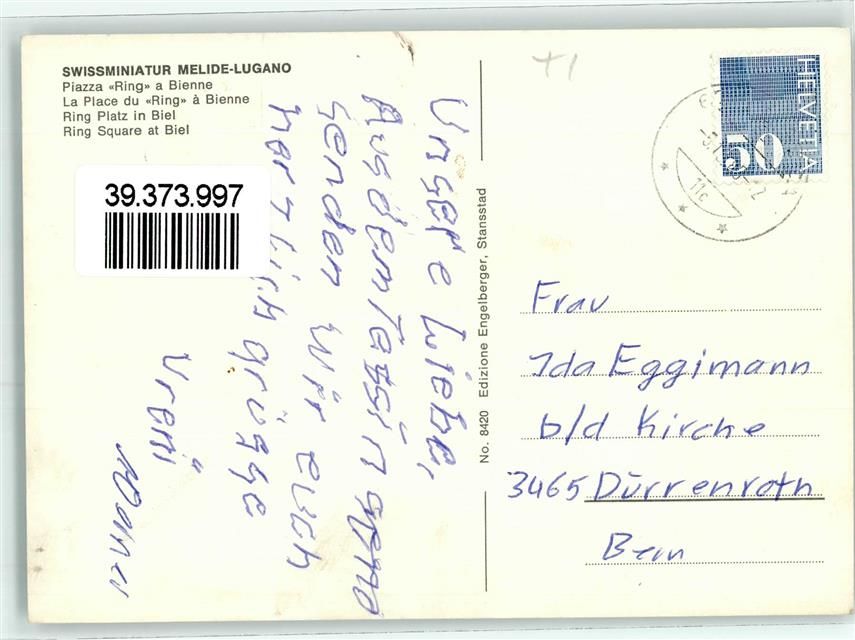 SWISSMINIATUR MELIDE-LUGANO
Piazza «Ring» a Bienne
La Place du «Ring» à Bienne
Ring Platz in Biel
Ring Square at Biel
39.373.997
Unsere Liebe,
Aus dem Tessin
senden wir euch
herzlich grüsse
Vreni
No. 8420 Edizione Engelberger, Stansstad
HELVETIA
50
11c
Frau
Ida Eggimann
b/d Kirche
3465 Dürrenroth
Bern